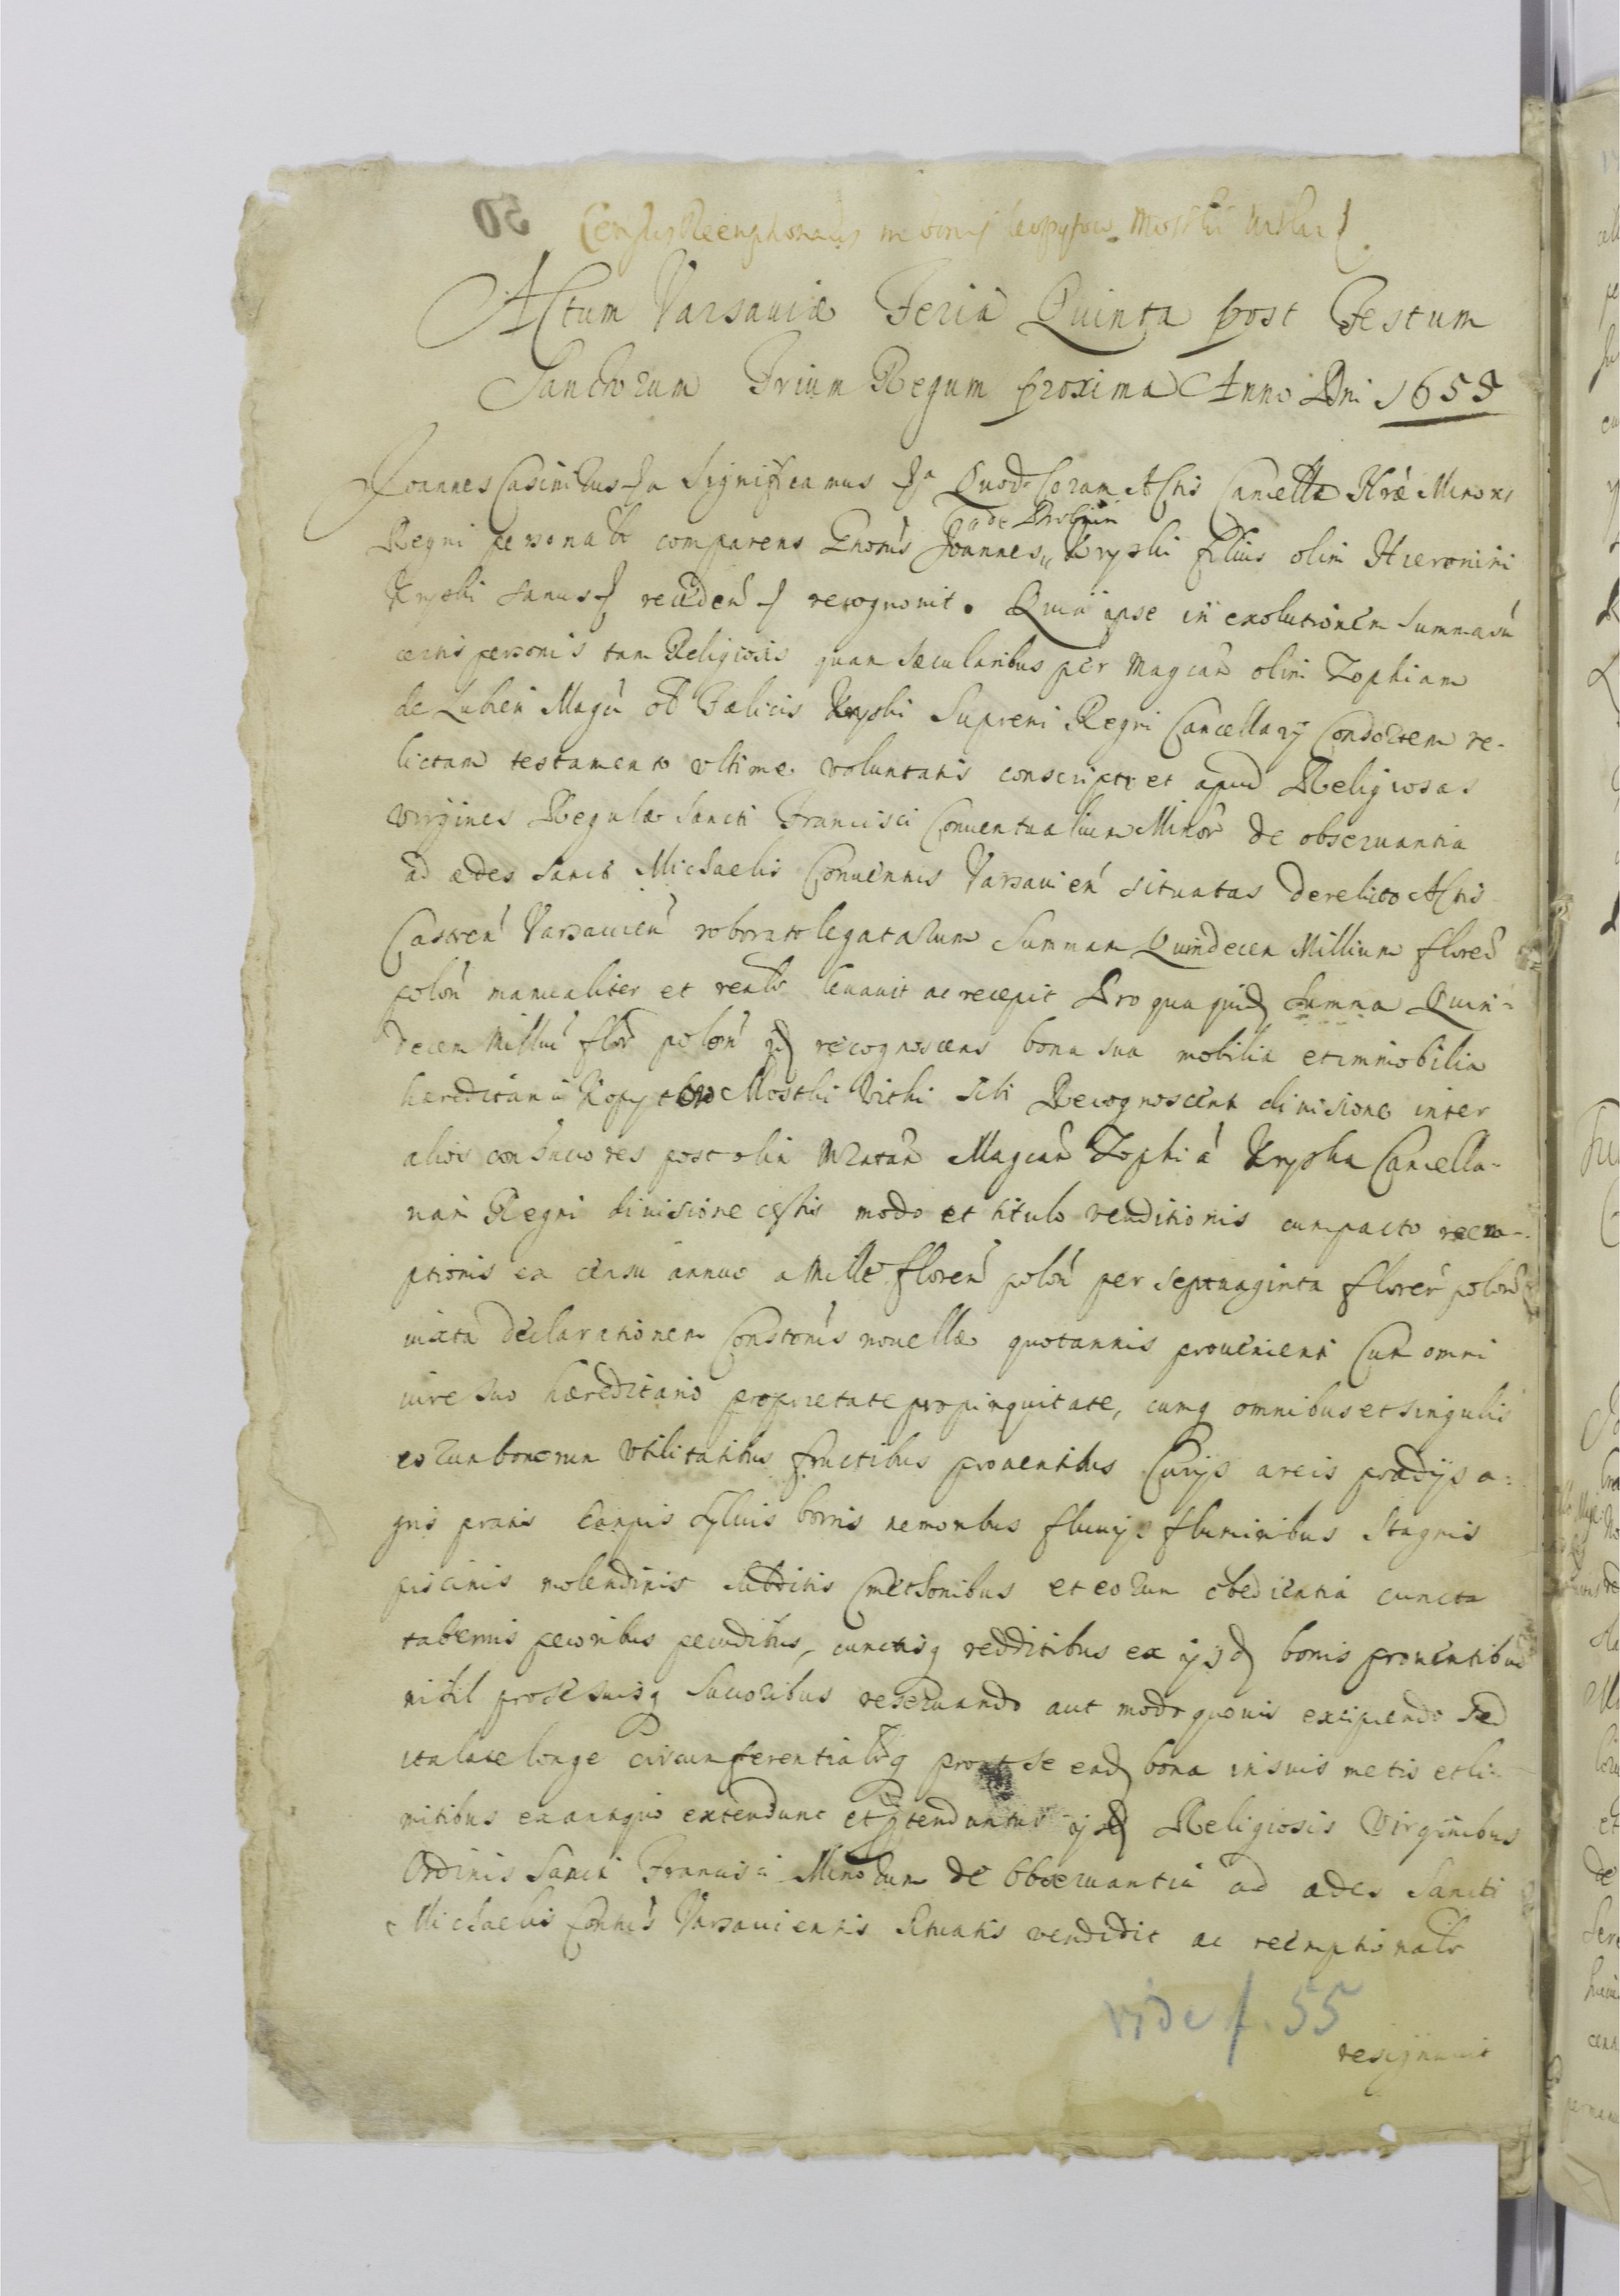 50
Census Reemptionalis in bonis Kopytow Mostki Witki
Actum Varsauiæ Feria Quinta post Festum
Sanctorum Trium Regum proxima Anno Dni 1655
Joannes Casimirus Significamus Quod Coram Actis Cancellæ Nræ Minoris
a de Drobnin
Regni personalr comparens Gnosus Joannes Kryski filius olim Hieronimi
Kryski sanus reciden recognouit. Quia ipse in exolutionem Summarū
certis personis tam Religiosis quam sæcularibus per Magcam olim Zophiam
de Lubien Magci olim Fælicis Kryski Supremi Regni Cancellarij Consortem re-
lictam testamento vltimæ voluntatis conscripto et apud Religiosas
virgines Regulæ Sancti Francisci Conuentualium Minor de obseruantia
ad ædes Sancti Michaelis Conuentus Varsauien situatas derelicto Actis
Castren Varsauien roborato legatarum Summam Quindecem Millium floren
polon manualiter et realr leuauit ac recepit Pro qua quid Summa Quin-
decem Milliu flor polon id recognoscens bona sua mobilia et immobilia
hæreditaria Kopytow Mostki Vitki sibi Recognoscenti diuisione inter
alios consuccores post olim Magcam Zophia Kryska Cancella-
riam Regni diuisione modo et titulo venditionis cum pacto reem-
ptionis ex censu annuo a Mille floren polon per septuaginta floren polon
iuxta declarationem Constonis nouellæ quotannis prouenienti Cum omni
iure suo hæreditario proprietate propinquitate, cumq omnibus et singulis
eorum bonorum vtilitatibus fructibus prouentibus Curijs areis prædijs a-
gris pratis campis syluis borris nemoribus fluuijs fluminibus stagnis
piscinis molendinis subditis Cmethonibus et eorum obedientia cuncta
tabernis pecoribus pecudibus, cunctisq redditibus ex ijsd bonis prouentibus
nihil pro se suisq succoribus reseruando aut modo quouis excipiendo sed
ita late longe circumferentialrq prout se ead bona in suis metis et li-
mitibus ex antiquo extendunt et ptenduntur ijsd Religiosis Virginibus
Ordinis Sancti Francisci Minorum de Obseruantia ad ædes Sancti
Michaelis Contus Varsauiensis situatis vendidit ac reemptionalr
vide f. 55
resignauit